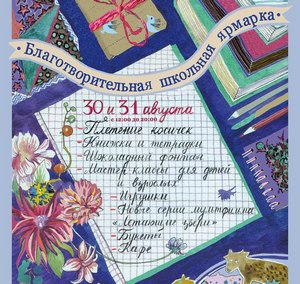 Благотворительная школьная ярмарка
30 и 31 августа
с 12:00 до 20:00
- Плетение косичек
- Книжки и тетрадки
- Шоколадный фонтан
- Мастер классы для детей
и взрослых
- Игрушки
- Новые серии мультфильма
«Летающие звери»
- Букеты
- Кафе